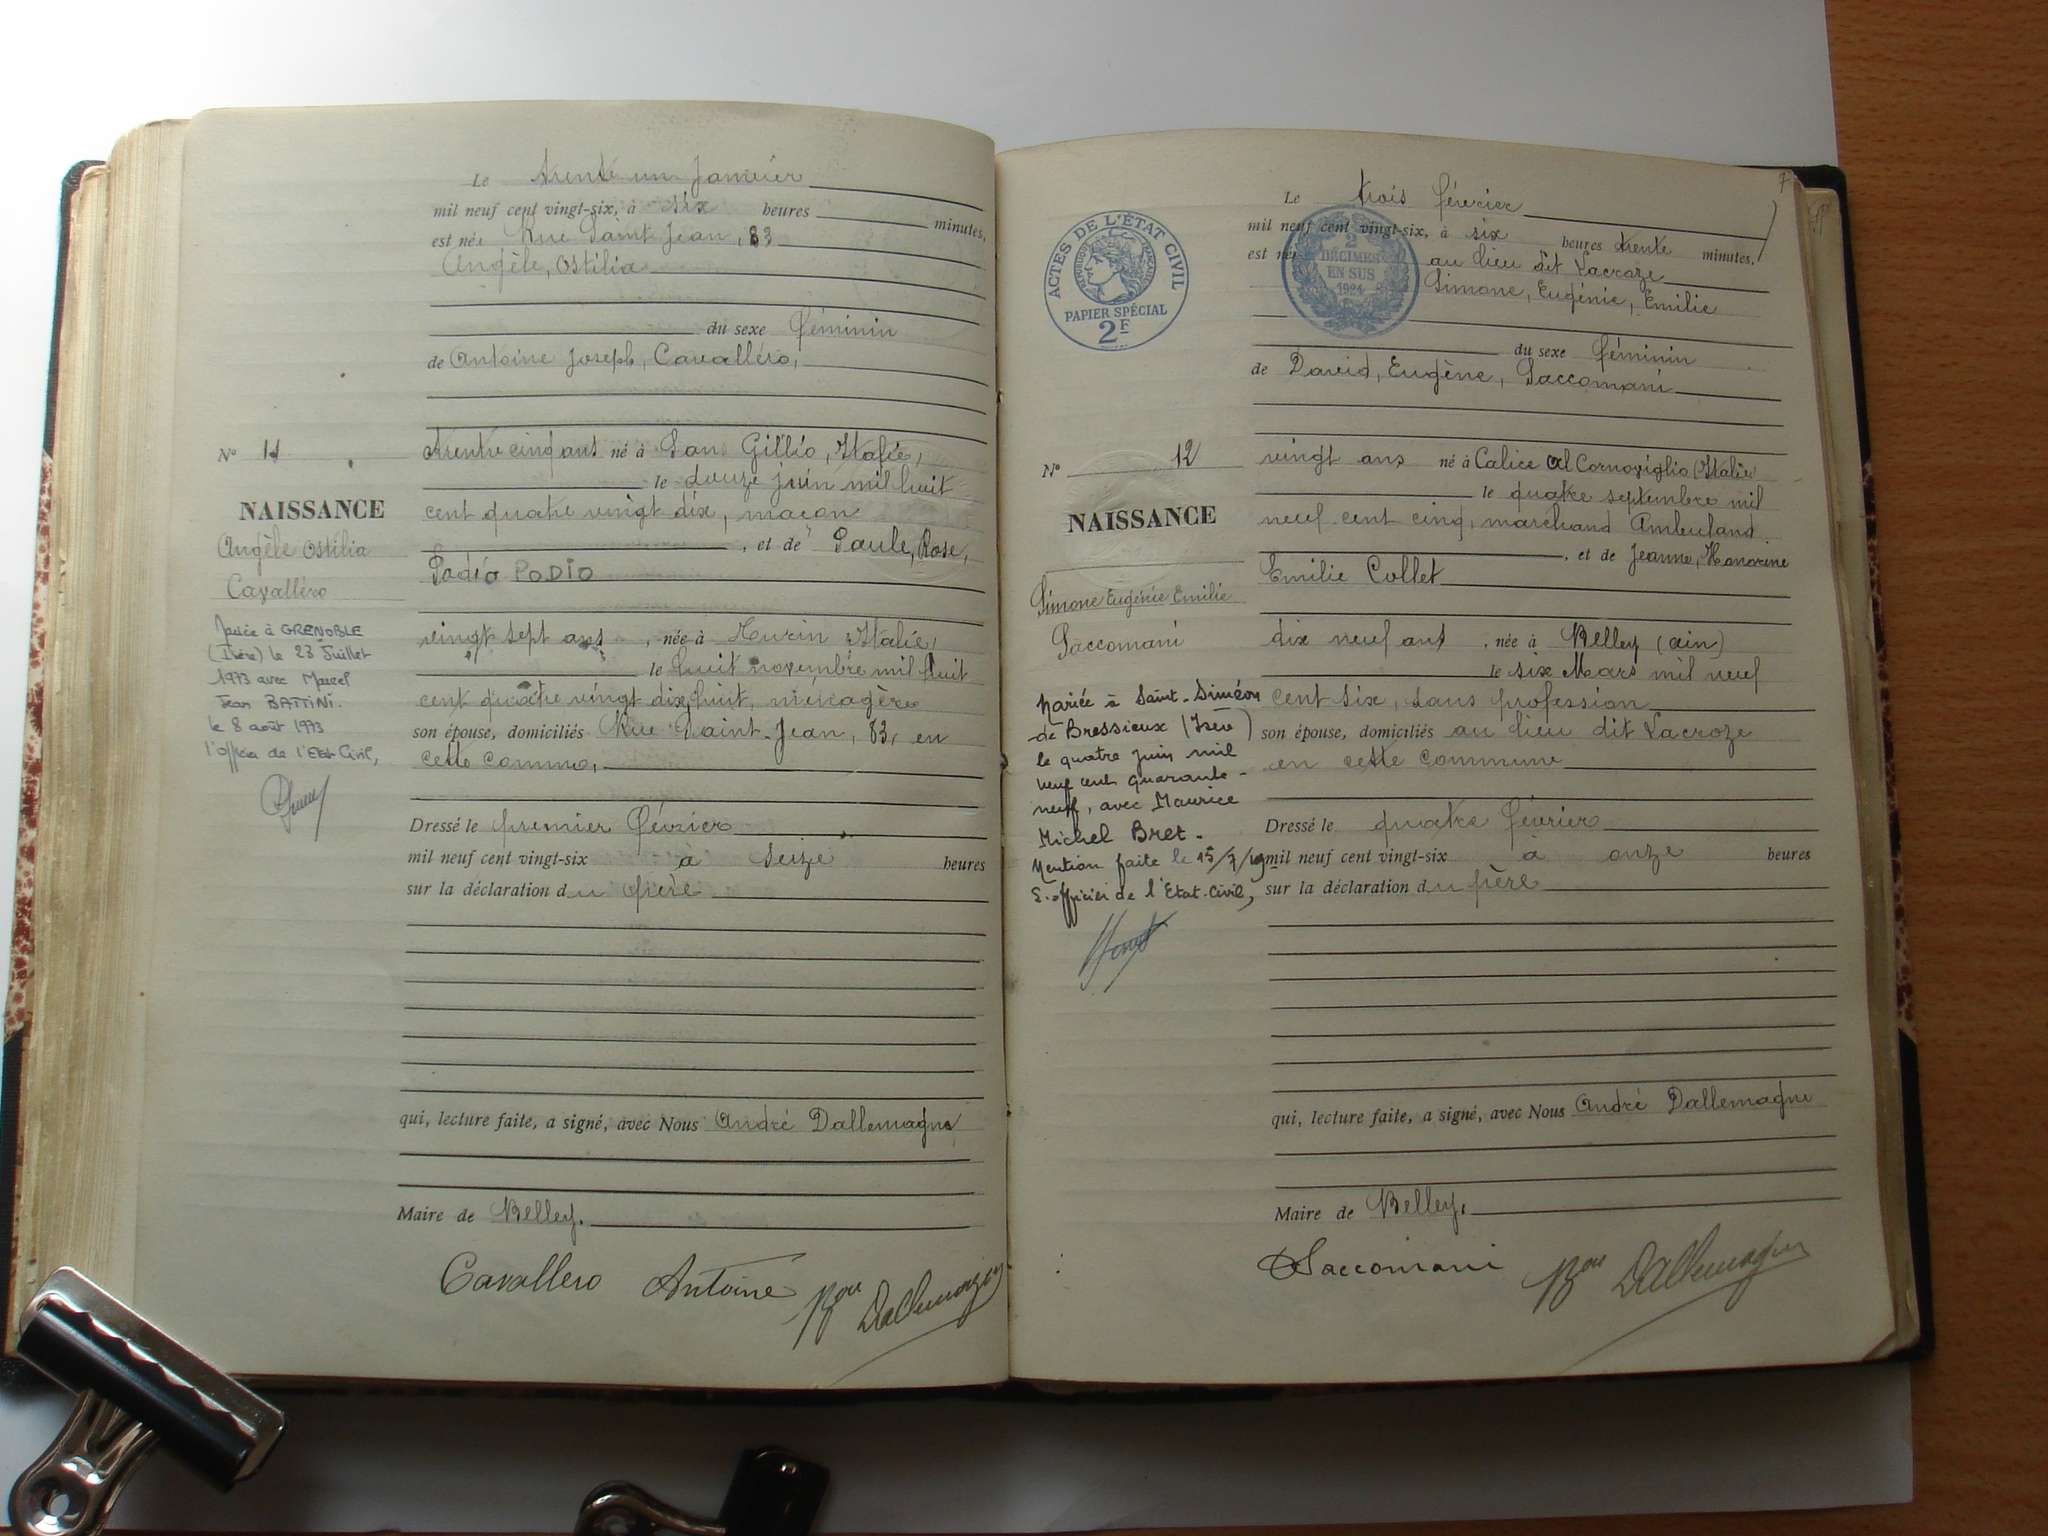 Le trente un janvier
mil neuf cent vingt-six, à six heures minutes,
est née Rue Saint Jean, 83
Angèle, Ostilia
du sexe féminin
de Antoine Joseph, Cavalléro,
Nº 11
trente cinq ans né à San Gillio, Italie,
le douze juin mil huit
NAISSANCE
cent quatre vingt dix, maçon
Angèle Ostilia
, et de Paule, Rose,
Cavalléro
Padio PODIO
Mariée à GRENOBLE
(Isère) le 23 Juillet
1973 avec Marcel
Jean BATTINI.
le 8 août 1973
l'officier de l'Etat Civil,
vingt sept ans, née à Turin Italie,
le huit novembre mil huit
cent quatre vingt dix huit, ménagère
son épouse, domiciliés Rue Saint-Jean, 83, en
cette commune,
Dressé le premier février
mil neuf cent vingt-six à seize heures
sur la déclaration du père
qui, lecture faite, a signé, avec Nous André Dallemagne
Maire de Belley.
Cavallero Antoine Bon Dallemagne
7
Le trois février
mil neuf cent vingt-six, à six heures trente minutes,
est née au lieu dit Lacroze
Simone, Eugénie, Emilie
ACTES DE L'ÉTAT CIVIL
RÉPUBLIQUE FRANÇAISE
PAPIER SPÉCIAL
2F
2
DÉCIMES
EN SUS
1924
du sexe féminin
de David, Eugène, Saccomani
Nº 12
vingt ans né à Calice Al Cornoviglio (Italie)
le quatre septembre mil
NAISSANCE
neuf cent cinq, marchand Ambuland
, et de Jeanne, Honorine
Emilie Collet
Simone Eugénie Emilie
Saccomani
dix neuf ans, née à Belley (ain)
le six Mars mil neuf
cent six, sans profession
son épouse, domiciliés au lieu dit Lacroze
en cette commune
Mariée à Saint-Siméon
de Bressieux (Isère)
le quatre juin mil
neuf cent quarante-
neuf, avec Maurice
Michel Bret.
Mention faite le 15/7/49
L'officier de l'Etat-Civil,
Dressé le quatre février
mil neuf cent vingt-six à onze heures
sur la déclaration du père
qui, lecture faite, a signé, avec Nous André Dallemagne
Maire de Belley,
DSaccomani Bon Dallemagne